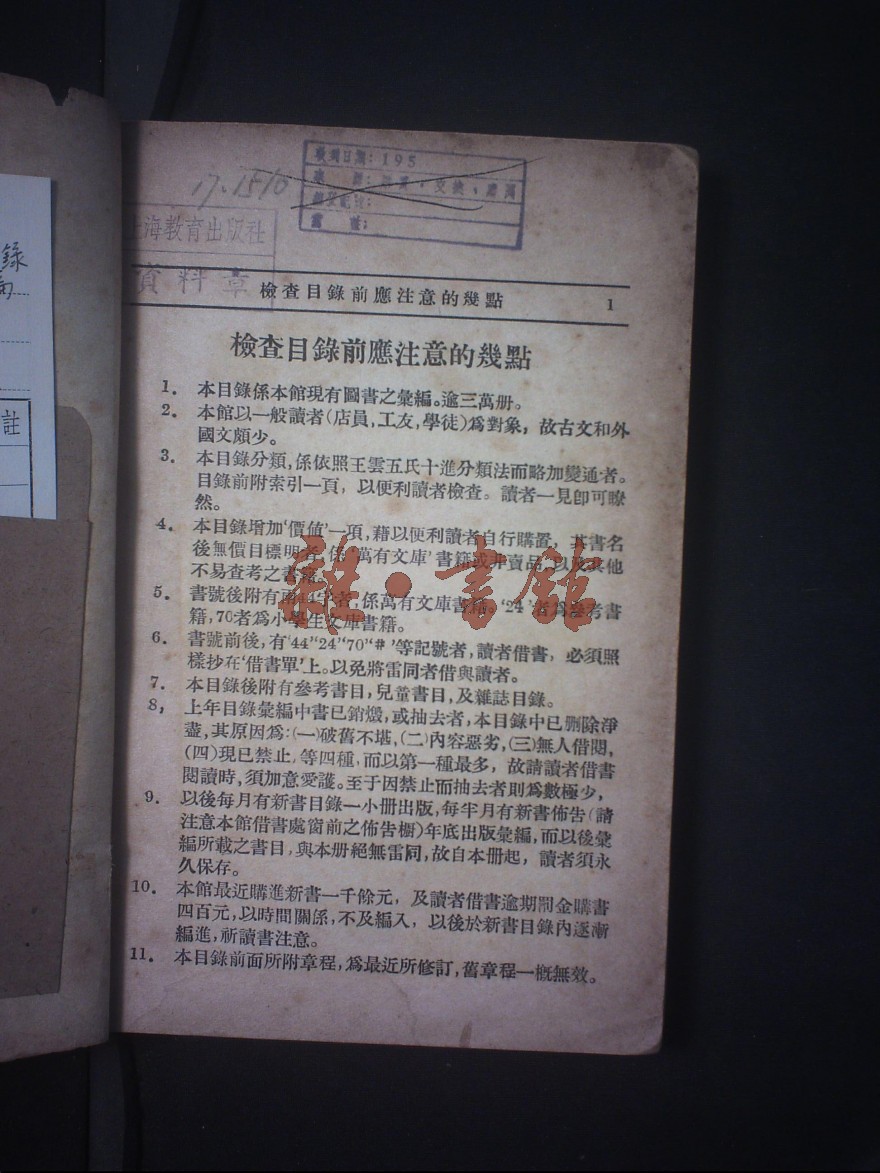 17.1510
收到日期：195
上海教育出版社
資料章
檢查目錄前應注意的幾點 1
檢查目錄前應注意的幾點
1. 本目錄係本館現有圖書之彙編。逾三萬册。
2. 本館以一般讀者（店員，工友，學徒）爲對象，故古文和外
國文頗少。
3. 本目錄分類，係依照王雲五氏十進分類法而略加變通者。
目錄前附索引一頁，以便利讀者檢查。讀者一見卽可瞭
然。
4. 本目錄增加‘價値’一項，藉以便利讀者自行購置，其書名
後無價目標明者，係‘萬有文庫’書籍或非賣品，以及其他
不易查考之書籍。
5. 書號後附有兩44字者，係萬有文庫書籍，‘24’者爲參考書
籍，70者爲小學生文庫書籍。
6. 書號前後，有‘44’‘24’‘70’‘#’等記號者，讀者借書，必須照
樣抄在‘借書單’上。以免將雷同者借與讀者。
7. 本目錄後附有參考書目，兒童書目，及雜誌目錄。
8, 上年目錄彙編中書已銷燬，或抽去者，本目錄中已删除淨
盡，其原因爲：（一）破舊不堪，（二）內容惡劣，（三）無人借閱，
（四）現已禁止，等四種，而以第一種最多，故請讀者借書
閱讀時，須加意愛護。至于因禁止而抽去者則爲數極少，
9. 以後每月有新書目錄一小册出版，每半月有新書佈告（請
注意本館借書處窗前之佈告櫥）年底出版彙編，而以後彙
編所載之書目，與本册絕無雷同，故自本册起，讀者須永
久保存。
10. 本館最近購進新書一千餘元，及讀者借書逾期罰金購書
四百元，以時間關係，不及編入，以後於新書目錄內逐漸
編進，祈讀書注意。
11. 本目錄前面所附章程，爲最近所修訂，舊章程一概無效。
雜·書館
錄
註